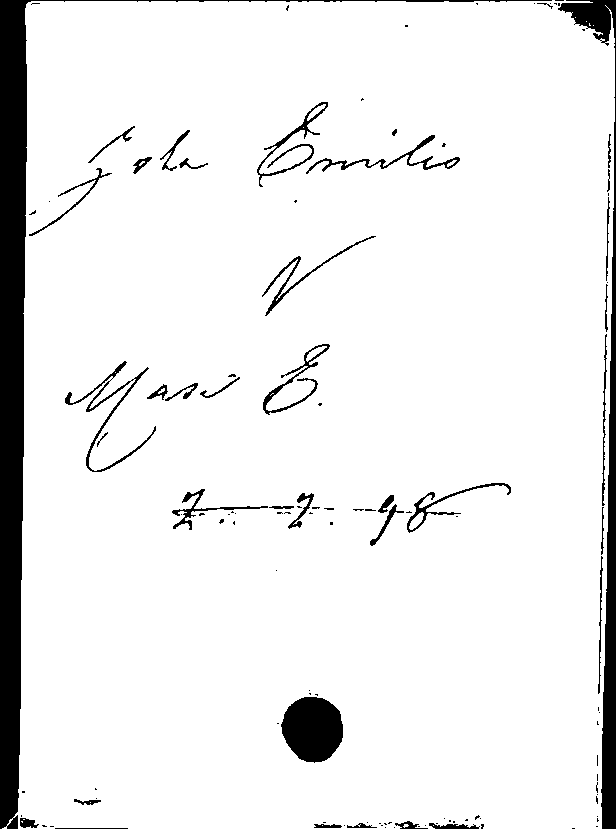 Zola Emilio
V
Masi E.
2. 2. 98